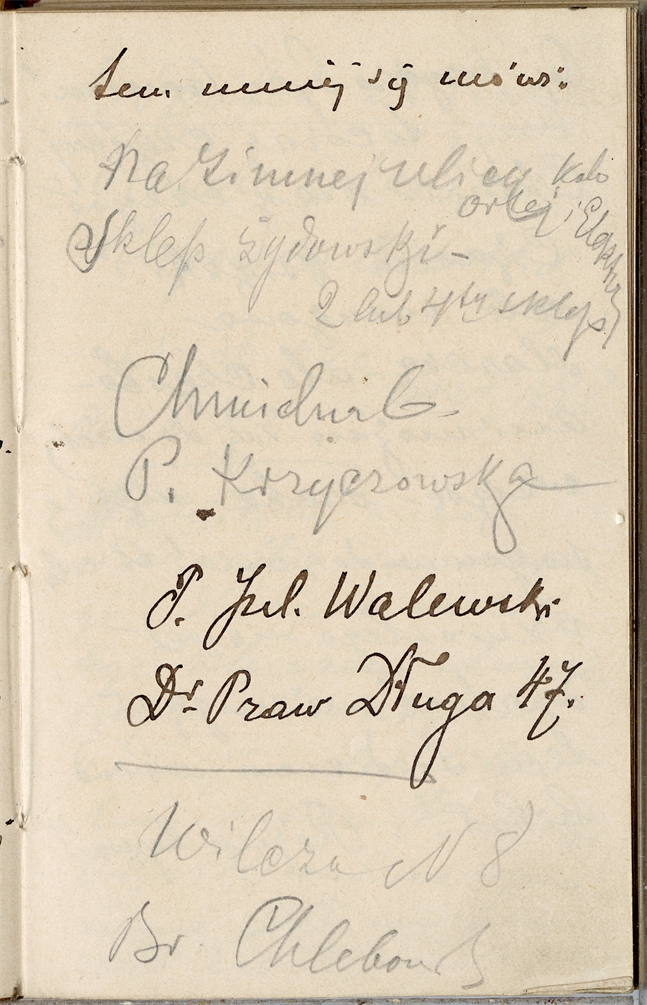 tem mniej się mówi:
Na Zimnej ulicy koło
Orlej i Elekt
Sklep żydowski –
2 lub 4ty sklep
P. Krzyczowska
P. Jul. Walewski
Dr. Praw Długa 47.
Wilcza N 8
Br. Chlebow